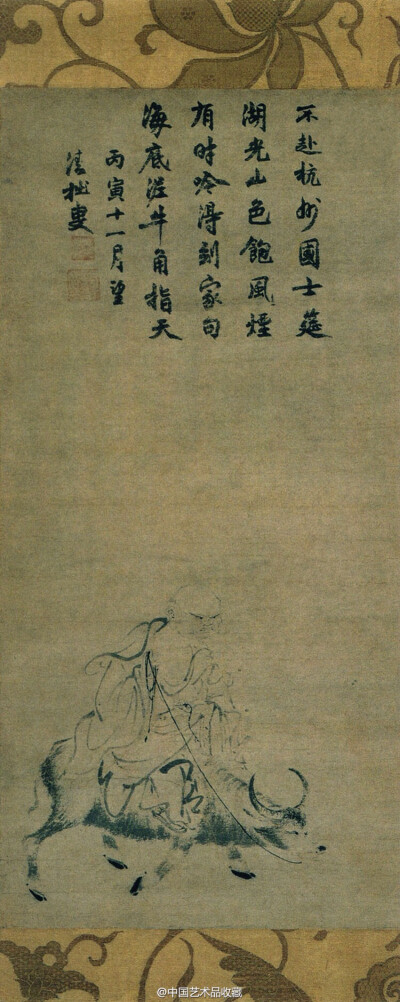 不赴杭州國士筵
湖光山色飽風煙
有時吟得到家句
海底泥牛角指天
丙寅十一月望
清拙叟
@中国艺术品收藏